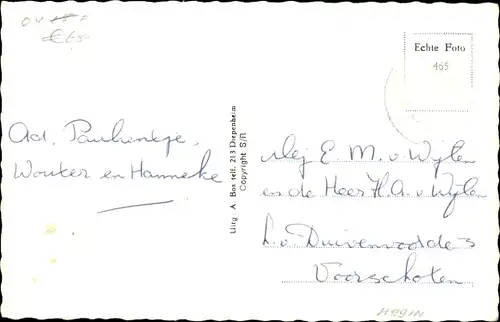 Echte Foto
465
Ad, Paulientje,
Wouter en Hanneke
Uitg A. Bos telf. 213 Diepenheim
Copyright S/R
Mej E. M. v Wijlen
en de Heer H. A. v Wijlen
L. v Duivenvoorde 3
Voorschoten